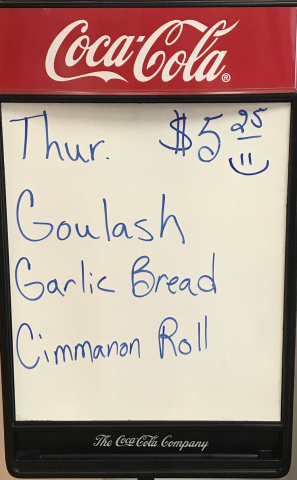 Coca-Cola®
Thur. $5 25
Goulash
Garlic Bread
Cimmanon Roll
The Coca-Cola Company